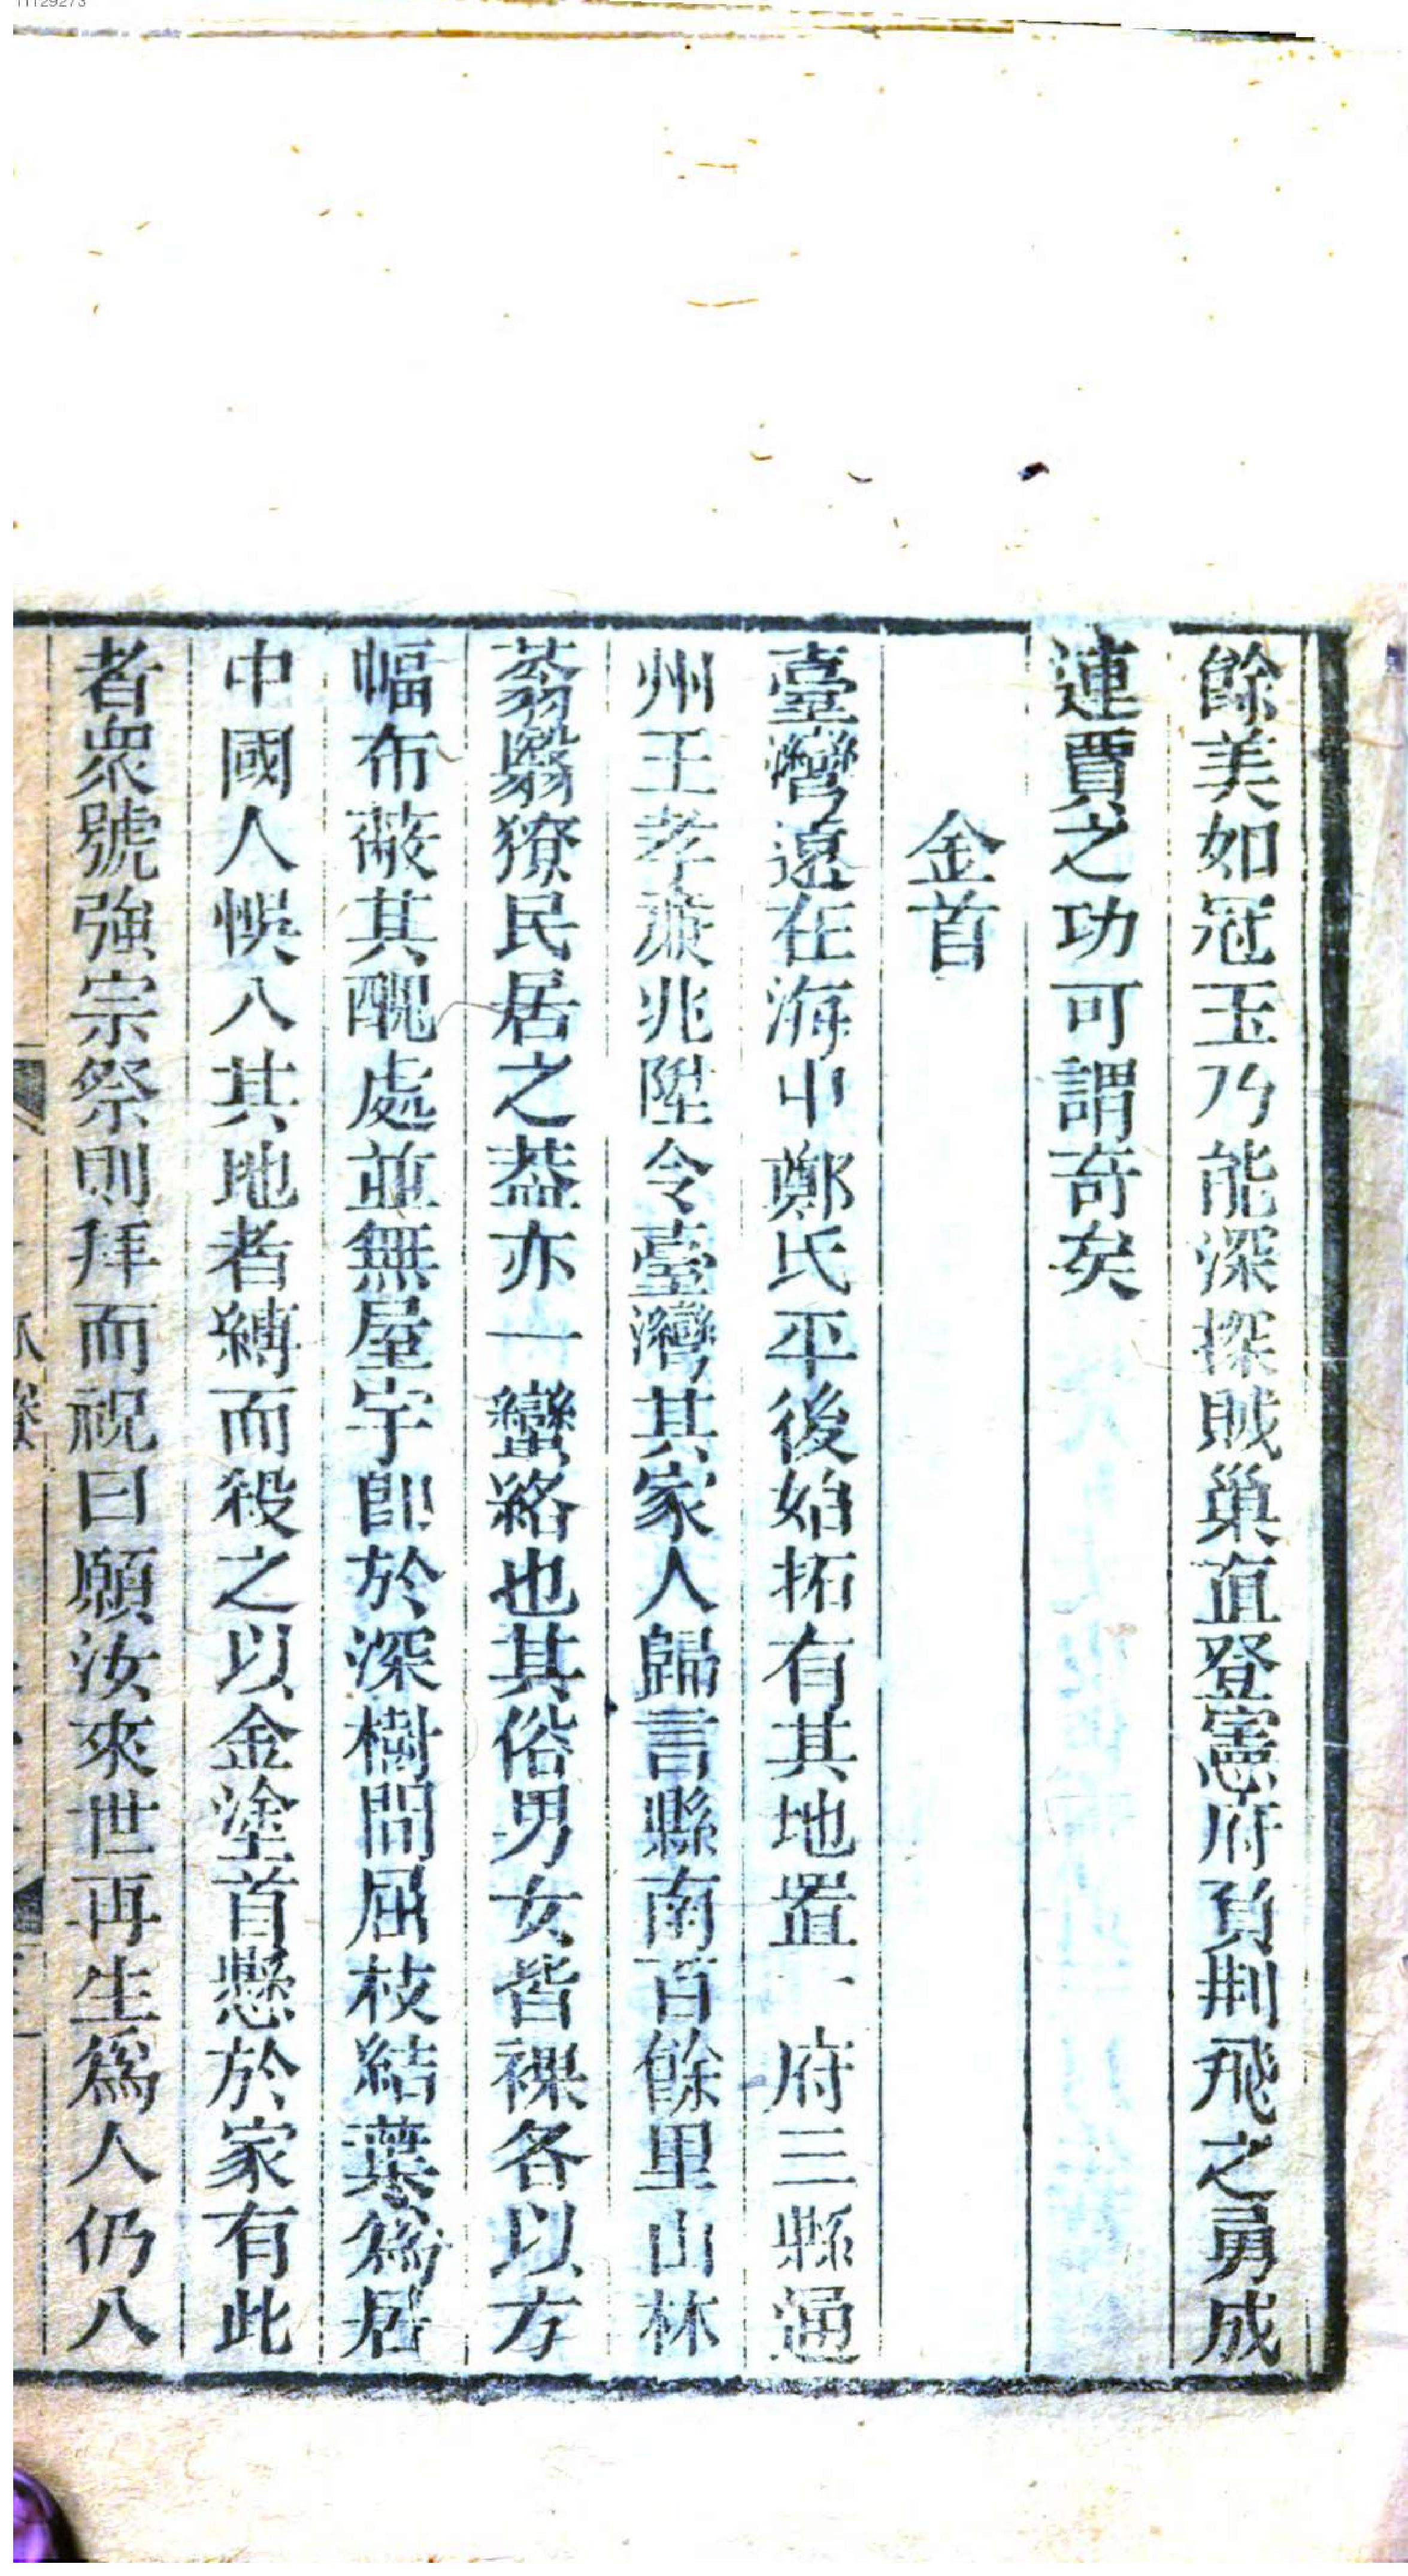 11129273
餘美如冠玉乃能深探賊巢直登憲府負荆飛之勇成
連賈之功可謂奇矣
金首
臺灣遠在海中鄭氏平後始拓有其地置一府三縣通
州王孝廉兆陞令臺灣其家人歸言縣南百餘里山林
蓊翳獠民居之葢亦一蠻絡也其俗男女皆裸各以方
幅布蔽其醜處並無屋宇卽於深樹間屈枝結葉爲居
中國人悞入其地者縛而殺之以金塗首懸於家有此
者衆號強宗祭則拜而祝曰願汝來世再生爲人仍入